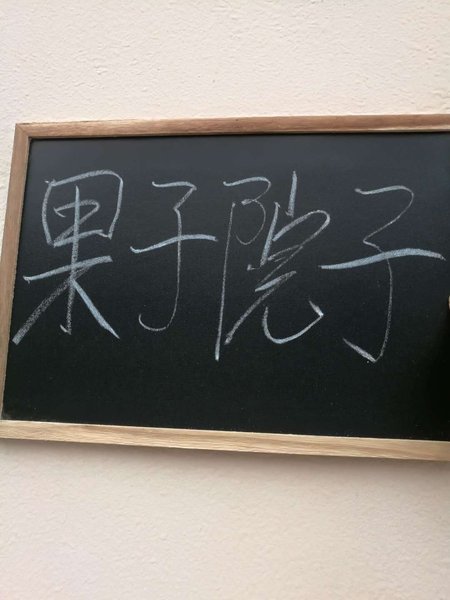 果子院子